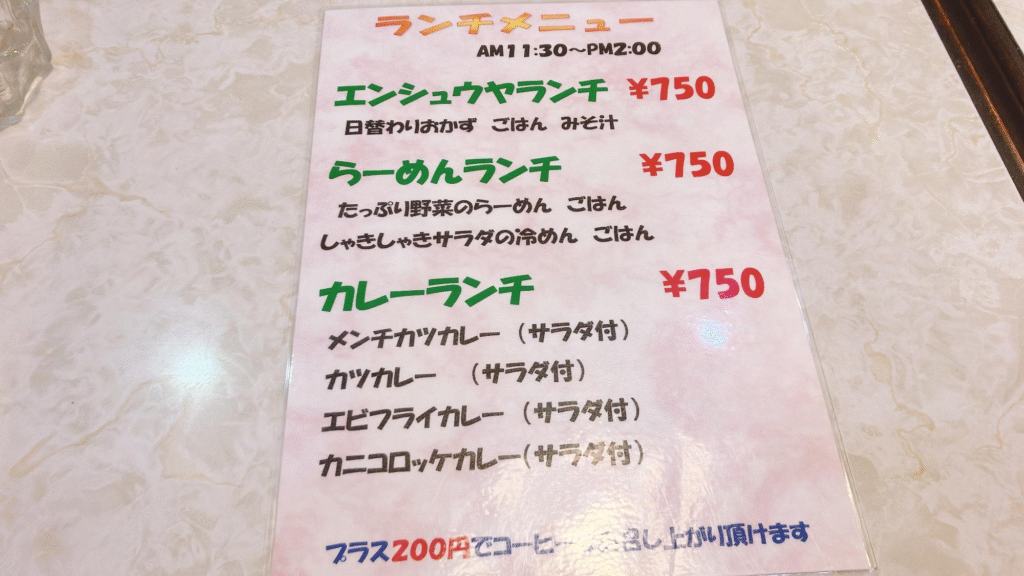 ランチメニュー
AM11:30〜PM2:00
エンシュウヤランチ ¥750
日替わりおかず ごはん みそ汁
らーめんランチ ¥750
たっぷり野菜のらーめん ごはん
しゃきしゃきサラダの冷めん ごはん
カレーランチ ¥750
メンチカツカレー (サラダ付)
カツカレー (サラダ付)
エビフライカレー (サラダ付)
カニコロッケカレー(サラダ付)
プラス200円でコーヒー 召し上がり頂けます